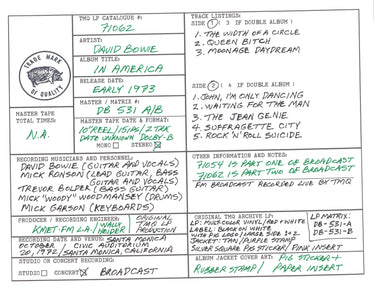 TMQ LP CATALOGUE #:
71062
ARTIST:
DAVID BOWIE
ALBUM TITLE:
IN AMERICA
RELEASE DATE:
EARLY 1973
MASTER / MATRIX #:
DB 531 A/B
TRADE MARK
OF QUALITY
MASTER TAPE
TOTAL TIMES:
N.A.
MASTER TAPE DATE & FORMAT:
10"REEL/15IPS/2TRK
DATE UNKNOWN DOLBY-B
MONO STEREO
TRACK LISTINGS:
SIDE 1 : 3 IF DOUBLE ALBUM:
1. THE WIDTH OF A CIRCLE
2. QUEEN BITCH
3. MOONAGE DAYDREAM
SIDE 2 : 4 IF DOUBLE ALBUM:
1. JOHN, I'M ONLY DANCING
2. WAITING FOR THE MAN
3. THE JEAN GENIE
4. SUFFRAGETTE CITY
5. ROCK 'N' ROLL SUICIDE
RECORDING MUSICIANS AND PERSONNEL:
DAVID BOWIE (GUITAR AND VOCALS)
MICK RONSON (LEAD GUITAR, BASS
GUITAR AND VOCALS)
TREVOR BOLDER (BASS GUITAR)
MICK "WOODY" WOODMANSEY (DRUMS)
MICK GARSON (KEYBOARD)
OTHER INFORMATION AND NOTES:
71054 IS PART ONE OF BROADCAST
71062 IS PART TWO OF BROADCAST
FM BROADCAST RECORDED LIVE BY TMQ
PRODUCER / RECORDING ENGINEER:
KMET-FM L.A./ WALLY HEIDER
ORIGINAL
TMQ LP
PRODUCTION
RECORDING DATE AND VENUE: SANTA MONICA
OCTOBER / CIVIC AUDITORIUM
20, 1972 / SANTA MONICA, CALIFORNIA
STUDIO OR CONCERT RECORDING:
STUDIO CONCERT BROADCAST
ORIGINAL TMQ ARCHIVE LP:
LP: MULTICOLOR VINYL/RED+WHITE
LABEL: BLACK ON WHITE
WITH PIG LOGO/LARGE SIDE 1+2
JACKET: TAN/PURPLE STAMP
SILVER SQUARE PIG STICKER/ PINK INSERT
LP MATRIX:
DB-531-A
DB-531-B
ALBUM JACKET COVER ART: PIG STICKER +
RUBBER STAMP/ PAPER INSERT